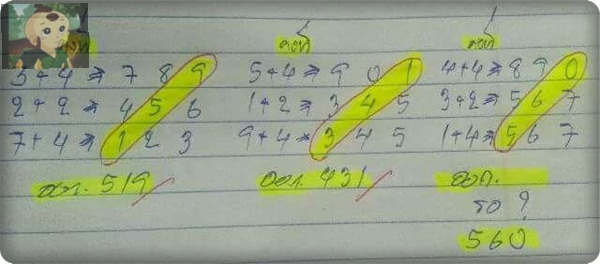 3+4 ⇒ 7 8 9 5+4 ⇒ 9 0 1 4+4 ⇒ 8 9 0
2+2 ⇒ 4 5 6 1+2 ⇒ 3 4 5 3+2 ⇒ 5 6 7
7+4 ⇒ 1 2 3 9+4 ⇒ 3 4 5 1+4 ⇒ 5 6 7
ออก. 519 ออก. 431 ออก.
รอ ?
560